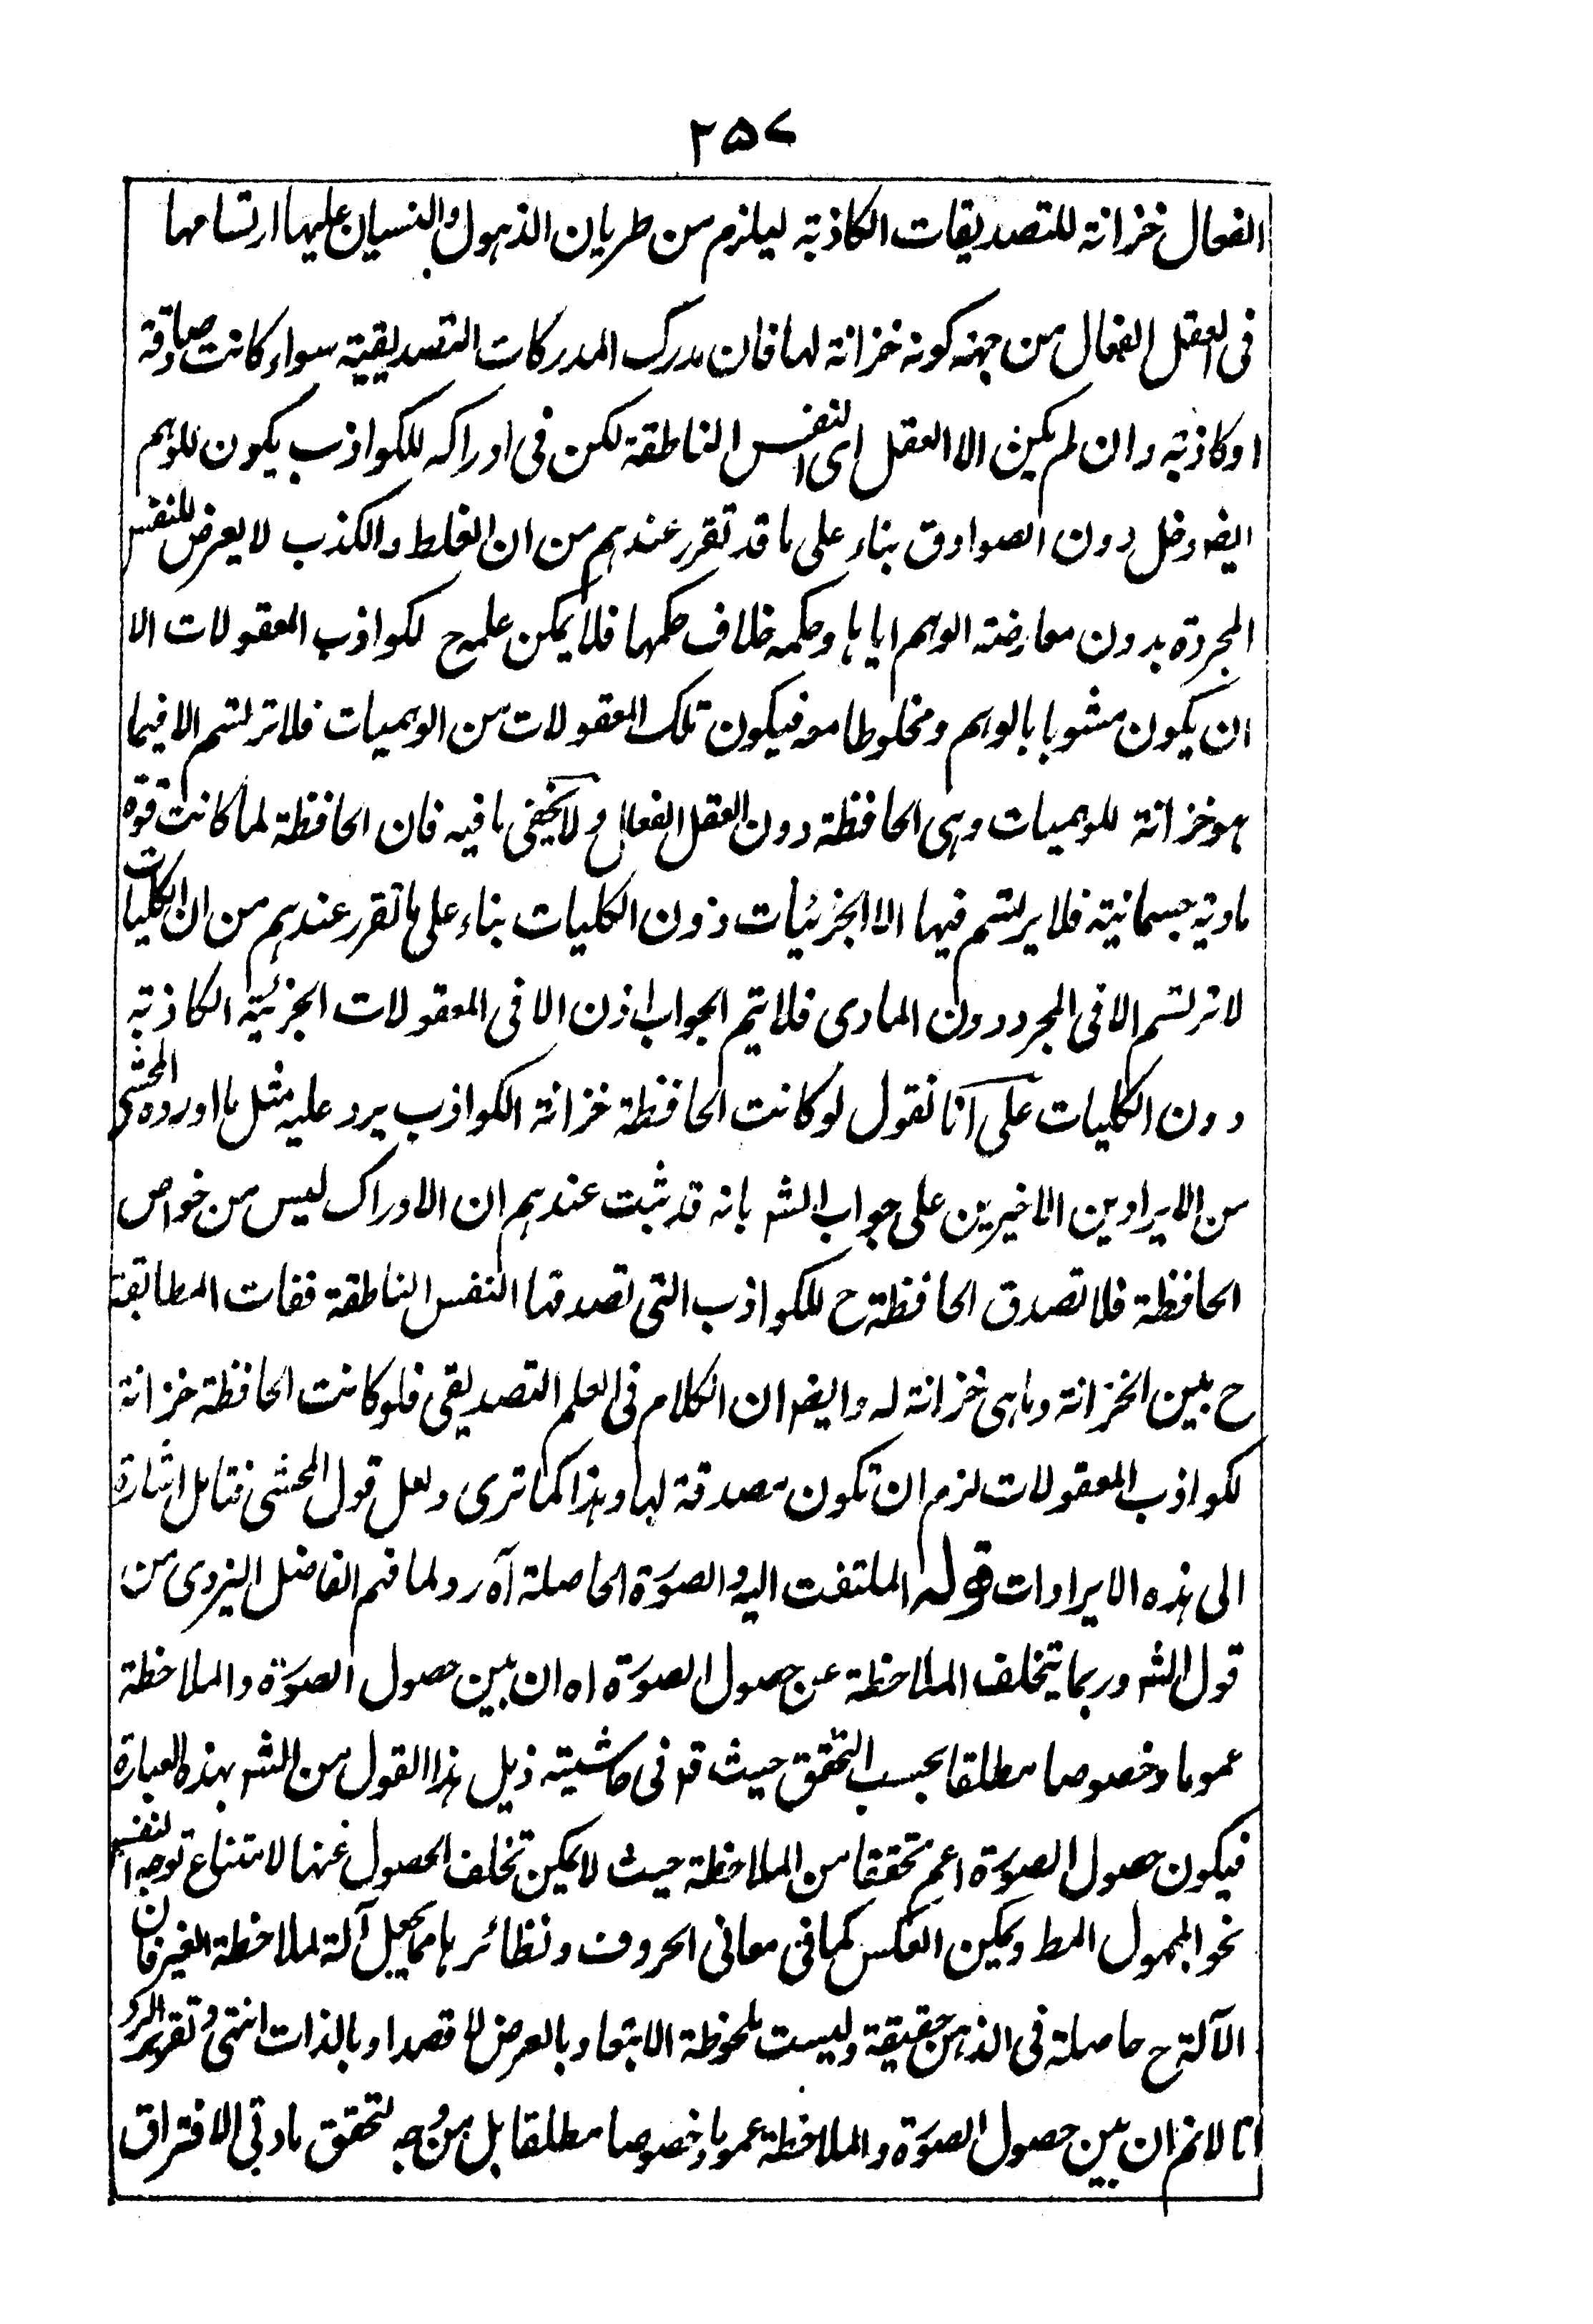 ۲۵۷
الفعال خزانة للتصديقات الكاذبة ليلزم من طريان الذهول والنسيان عليها ارتسامها
فى العقل الفعال من جهة كونه خزانة لها فان مدرك المدركات التصديقية سواء كانت صادقة
او كاذبة وان لم يكن الا العقل اى النفس الناطقة لكن فى ادراكه للكواذب يكون للوهم
ايضا دخل دون الصوادق بناء على ما قد تقرر عندهم من ان الغلط والكذب لا يعرض للنفس
المجردة بدون معارضة الوهم اياها وحكمه خلاف حكمها فلا يمكن علمه ح لكواذب المعقولات الا
ان يكون مشوبا بالوهم ومخلوطا معه فيكون تلك المعقولات من الوهميات فلا ترتسم الا فيما
هو خزانة للوهميات وهى الحافظة دون العقل الفعال ولا يخفى ما فيه فان الحافظة لما كانت قوة
مادية جسمانية فلا يرتسم فيها الا الجزئيات دون الكليات بناء على ما تقرر عندهم من ان الكليات
لا ترتسم الا فى المجرد دون المادى فلا يتم الجواب اذن الا فى المعقولات الجزئية الكاذبة
دون الكليات على انا نقول لو كانت الحافظة خزانة الكواذب يرد عليه مثل ما اورده المحشى
من الايرادين الاخيرين على جواب الشہ بانه قد ثبت عندهم ان الادراك ليس من خواص
الحافظة فلا تصدق الحافظة ح للكواذب التى تصدقها النفس الناطقة ففات المطابقة
ح بين الخزانة وما هى خزانة له وايضا ان الكلام فى العلم التصديقى فلو كانت الحافظة خزانة
لكواذب المعقولات لزم ان تكون مصدقة لها وهذا كما ترى ولعل قول المحشى فتامل اشارة
الى هذه الايرادات قوله الملتفت اليه والصورة الحاصلة آه رد لما فهم الفاضل اليزدى من
قول الشہ وربما يتخلف الملاحظة عن حصول الصورة اه ان بين حصول الصورة والملاحظة
عموما وخصوصا مطلقا بحسب التحقق حيث قہ فى حاشيته ذيل هذا القول من الشہ بهذه العبارة
فيكون حصول الصورة اعم تحققا من الملاحظة حيث لا يمكن تخلف الحصول عنها لامتناع توجه النفس
نحو المجهول المط ويمكن العكس كما فى معانى الحروف ونظائرها مما يجعل آلة لملاحظة الغير فان
الآلة ح حاصلة فى الذهن حقيقة وليست ملحوظة الا تبعا وبالعرض لا قصدا وبالذات انتهى وتقرير الرد
انا لا نم ان بين حصول الصورة والملاحظة عموما وخصوصا مطلقا بل من وجه لتحقق مادتى الافتراق